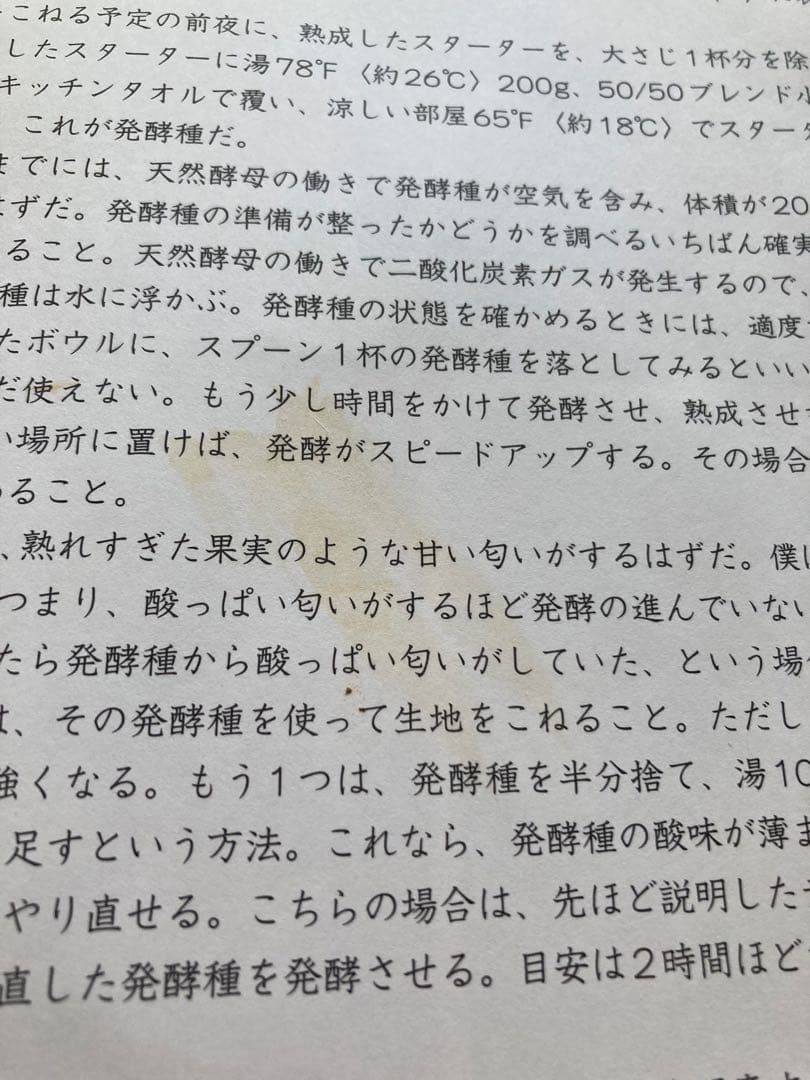 こねる予定の前夜に、熟成したスターターを、大さじ1杯分を除
したスターターに湯78°F〈約26℃〉200g、50/50ブレンド
キッチンタオルで覆い、涼しい部屋65°F〈約18℃〉でスター
これが発酵種だ。
までには、天然酵母の働きで発酵種が空気を含み、体積が20
はずだ。発酵種の準備が整ったかどうかを調べるいちばん確実
ること。天然酵母の働きで二酸化炭素ガスが発生するので、
種は水に浮かぶ。発酵種の状態を確かめるときには、適度
たボウルに、スプーン1杯の発酵種を落としてみるといい
だ使えない。もう少し時間をかけて発酵させ、熟成させ
い場所に置けば、発酵がスピードアップする。その場合
ること。
、熟れすぎた果実のような甘い匂いがするはずだ。僕
つまり、酸っぱい匂いがするほど発酵の進んでいない
たら発酵種から酸っぱい匂いがしていた、という場合
は、その発酵種を使って生地をこねること。ただし
強くなる。もう1つは、発酵種を半分捨て、湯10
足すという方法。これなら、発酵種の酸味が薄ま
やり直せる。こちらの場合は、先ほど説明した
直した発酵種を発酵させる。目安は2時間ほど